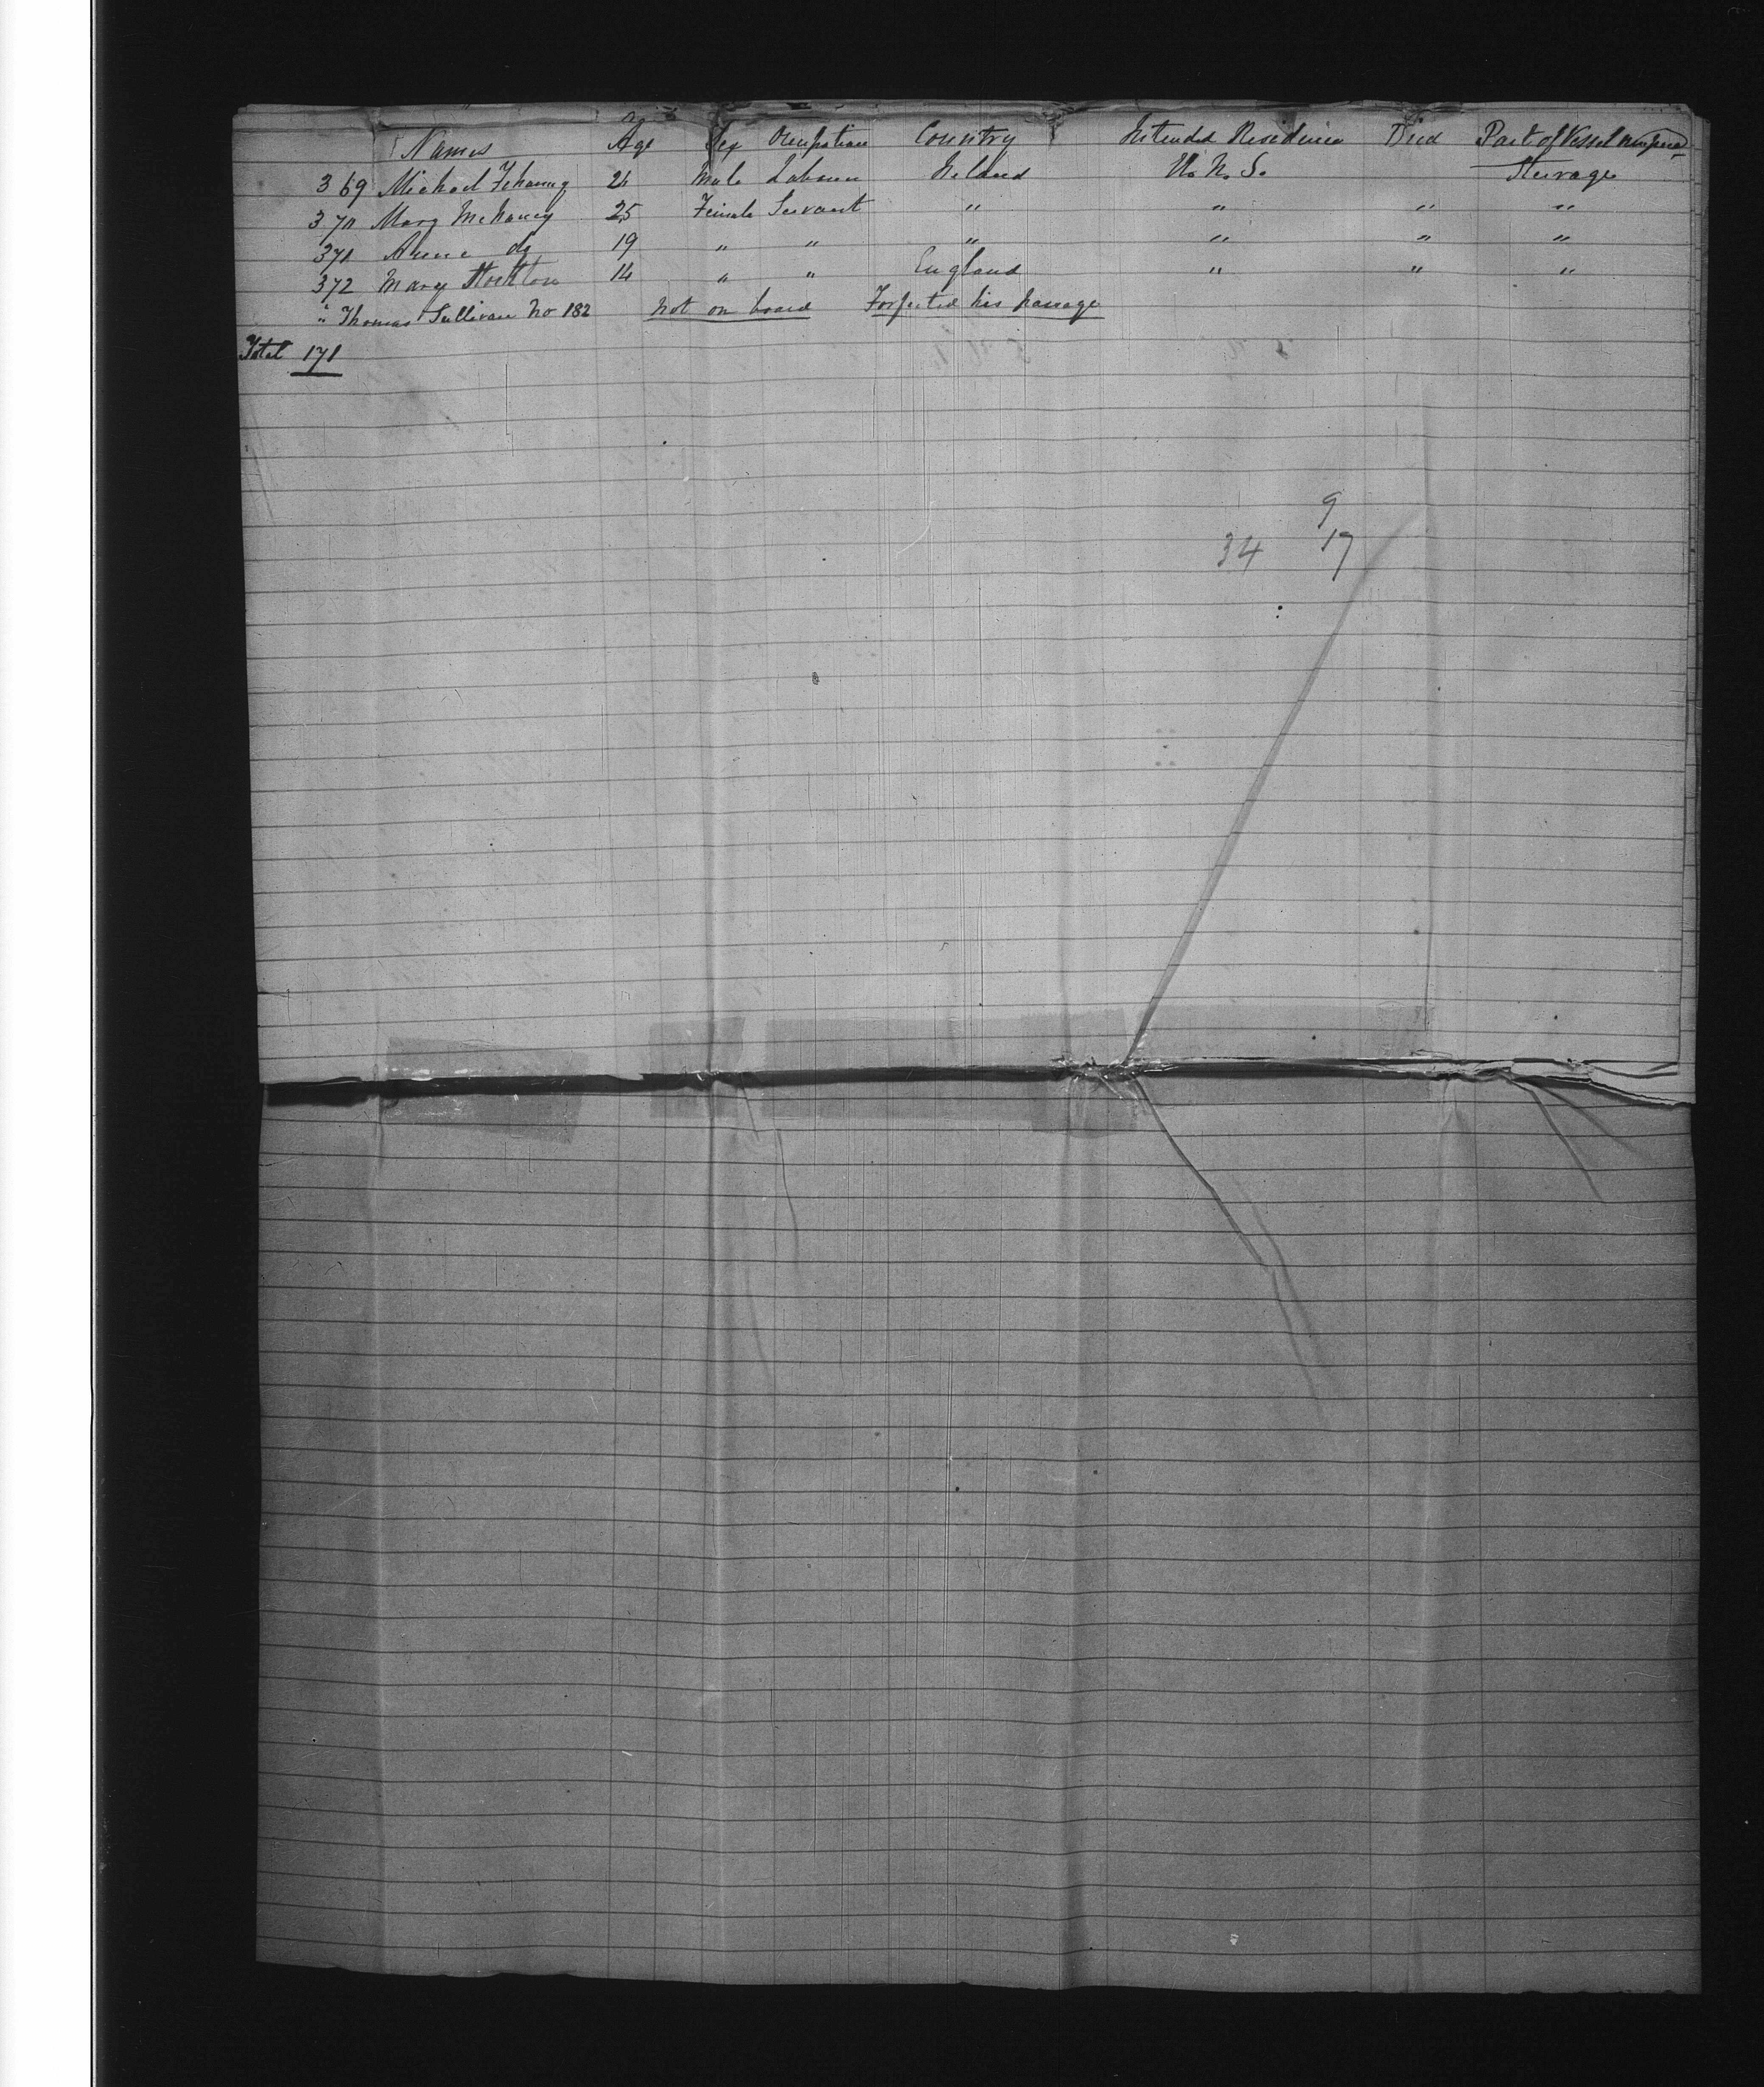 Names Age Sex Occupation Country Intended Residence Died Part of Vessel
369 Michael 21 Male Laborer Ireland U. N. S. Steerage
370 Mary McHaney 25 Female Servant " " " "
371 Anne do 19 " " " " " "
372 Mary Stockton 14 " " England " " "
" Thomas Sullivan No 182 not on board Forfeited his passage
Total 171
9
34 17